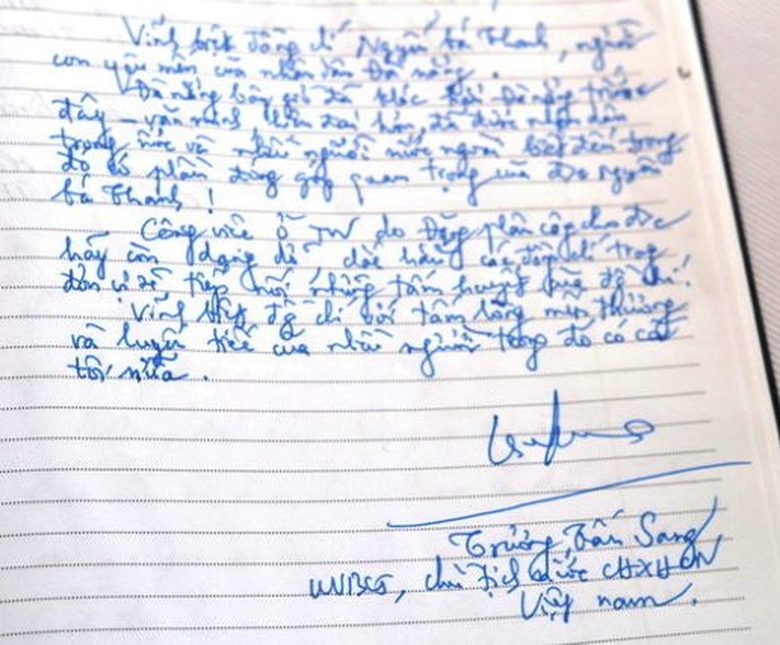 Vĩnh biệt đồng chí Nguyễn Bá Thanh, người
con yêu mến của nhân dân Đà nẵng.
Đà nẵng bây giờ đã khác Đà nẵng trước
đây – văn minh hơn, đã được nhân dân
trong nước và nhiều người nước ngoài biết đến trong
đó có phần đóng góp quan trọng của đ/c Nguyễn
bá Thanh!
Công việc ở TW do Đảng phân công cho đ/c
hãy còn dang dở các đồng chí trong
đơn vị sẽ tiếp nối những tâm huyết của đ/chí.
Vĩnh biệt đ/chí với tấm lòng mến thương
và luyến tiếc của nhiều người trong đó có cả
tôi nữa.
Trương Tấn Sang
UVBCT, chủ tịch nước CHXHCN
Việt nam.